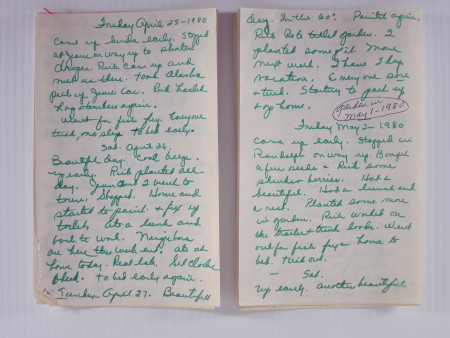 Friday April 25-1980
Came up kinda early. Stopped
at Jeans on way up to
Rick Came up and
met us there. Took Alaska
pick up Jeans Car. Rick hauled
Logs timber again.
Went for fish fry. Everyone
tired, no sleep to bed early.
Sat. April 26.
Beautiful day. Cool breeze.
up early. Rick planted all-
day. Jean and I went to
town. Shopped. Home and
started to paint & fix up
toilets. Ate a lunch and
back to work. Neighbors
are here this week end. ate at
home today. Real late. Set Clocks
Ahead. To bed early again.
Sunday April 27. Beautiful
day. In the 60's. Painted again.
Rick Rob tilled garden. I
planted some of it. More
next week. I have 5 day
vacation. Everyone sore
& tired. Starting to pack up
& go home.
garden in
May 1-1980
Friday May 2-1980
Came up early. Stopped in
on way up. Bought
a few seeds & Rick some
berries. Had a
beautiful. Had a lunch and
a rest. Planted some more
in garden. Rick worked on
the trailer think looks. Went
out for fish fry & home to
bed tired out.
— Sat.
up early. another beautiful